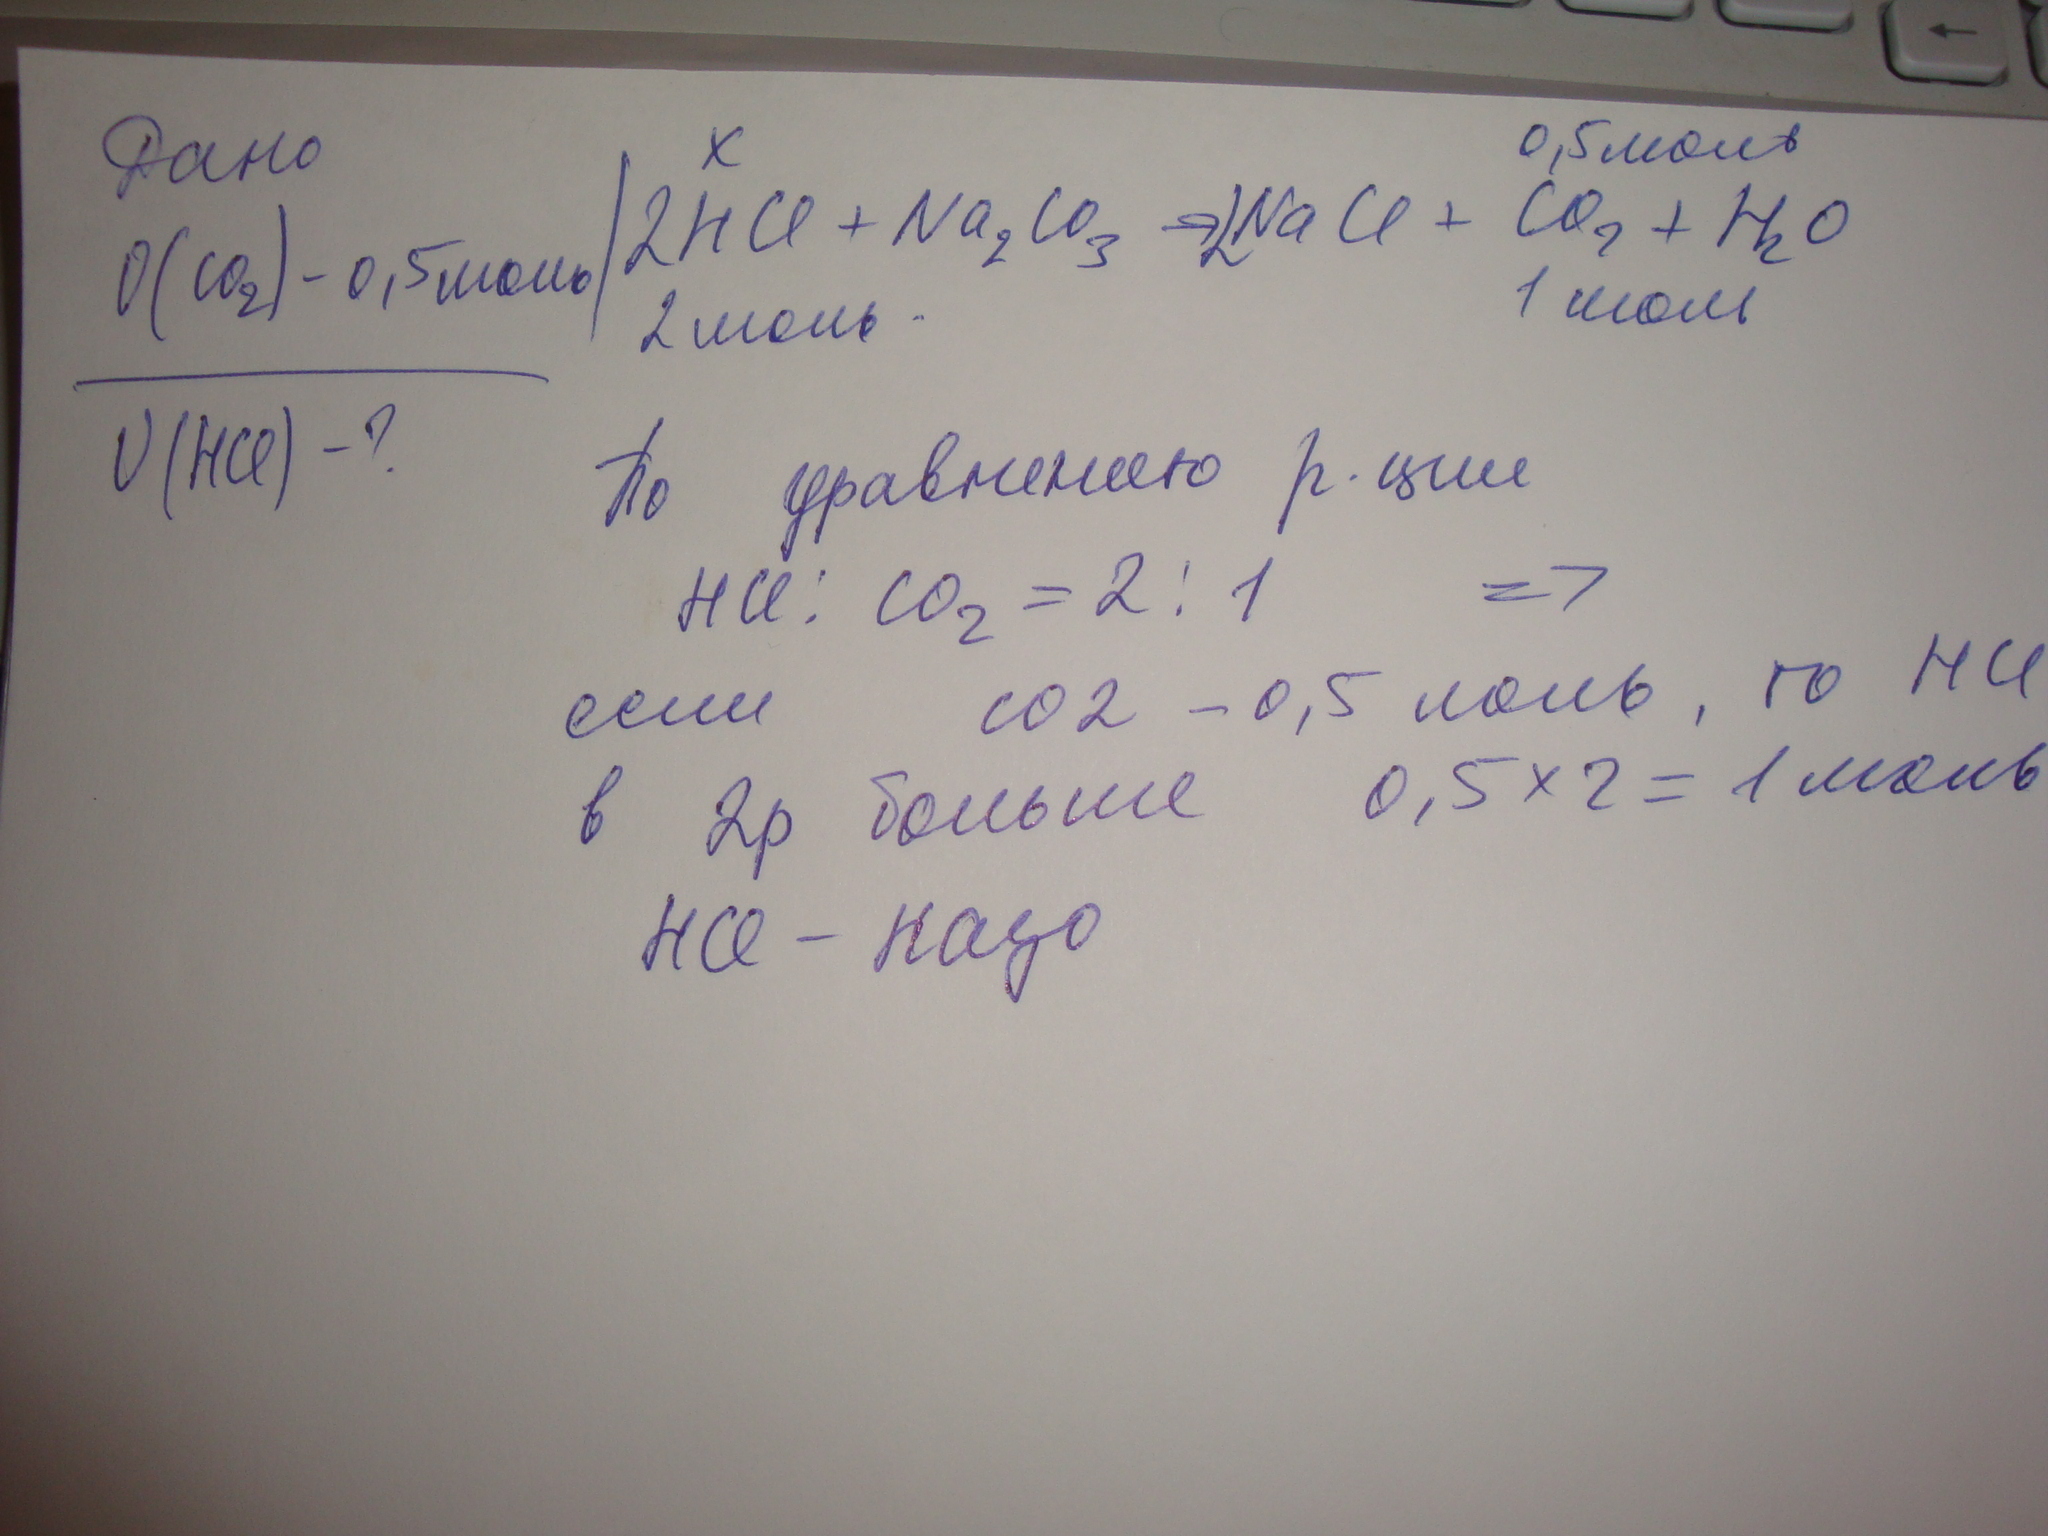 Дано
x
0,5 моль
ν(CO₂) - 0,5 моль
2HCl + Na₂CO₃ → 2NaCl + CO₂ + H₂O
2 моль
1 моль
ν(HCl) - ?
По уравнению р.ции
HCl : CO₂ = 2 : 1 =>
если CO2 - 0,5 моль, то HCl
в 2р больше 0,5 × 2 = 1 моль
HCl - надо